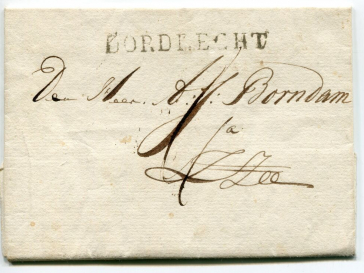 DORDRECHT
Den Heer A. J. Borndam
a
Z Zee